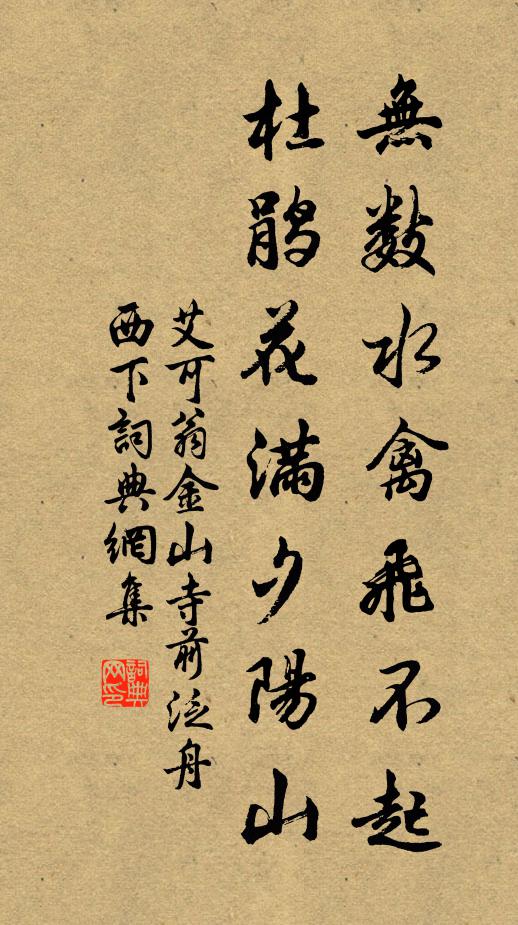 無数水禽飛不起
杜鵑花滿夕陽山
艾可翁金山寺前泛舟
西下詞典網集
詞典
网印